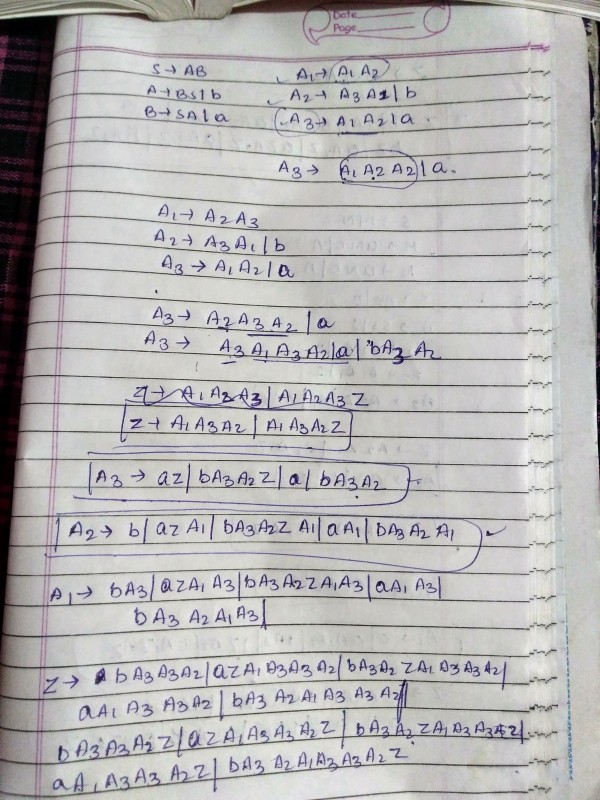 Date
Page
S → AB    A₁ → A₁ A₂
A → BS | b    A₂ → A₃ A₁ | b
B → SA | a    A₃ → A₁ A₂ | a.
A₃ → A₁ A₂ A₂ | a.
A₁ → A₂ A₃
A₂ → A₃ A₁ | b
A₃ → A₁ A₂ | a
A₃ → A₂ A₃ A₂ | a
A₃ → A₃ A₁ A₃ A₂ | a | bA₃ A₂
Z → A₁ A₂ A₃ | A₁ A₂ A₃ Z
Z → A₁ A₃ A₂ | A₁ A₃ A₂ Z
A₃ → aZ | bA₃A₂Z | a | bA₃A₂
A₂ → b | aZA₁ | bA₃A₂Z A₁ | aA₁ | bA₃A₂A₁
A₁ → bA₃ | aZA₁A₃ | bA₃A₂ZA₁A₃ | aA₁A₃ |
bA₃ A₂A₁A₃ |
Z → bA₃A₃A₂ | aZA₁A₃A₃A₂ | bA₃A₂ ZA₁A₃A₃A₂ |
aA₁ A₃ A₃A₂ | bA₃ A₂A₁A₃ A₃ A₂ |
bA₃A₃A₂Z | aZA₁A₃A₃A₂Z | bA₃A₂ZA₁A₃A₃A₂Z |
aA₁A₃A₃A₂Z | bA₃A₂A₁A₃A₃A₂Z